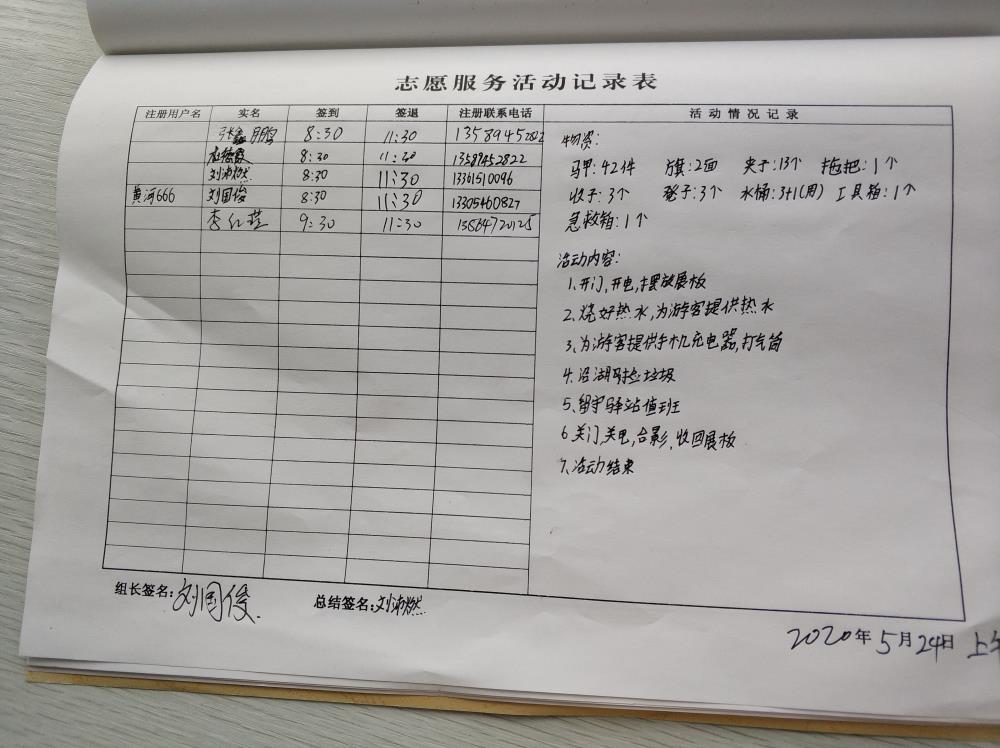 志愿服务活动记录表
注册用户名 实名 签到 签退 注册联系电话 活动情况记录
张鑫鹏 8:30 11:30 13589452822
8:30 11:30 13589452822
刘沛燃 8:30 11:30 13361510096
黄河666 刘国俊 8:30 11:30 13305460827
李红莲 9:30 11:30 13564720125
物资:
马甲:42件 旗:2面 夹子:13个 拖把:1个
收子:3个 凳子:3个 水桶:3+1(周) 工具箱:1个
急救箱:1个
活动内容:
1、开门,开电,摆放展板
2、烧好热水,为游客提供热水
3、为游客提供手机充电器,打气筒
4、沿湖捡垃圾
5、留守驿站值班
6、关门,关电,合影,收回展板
7、活动结束
组长签名:刘国俊 总结签名:刘沛燃
2020年5月24日 上午